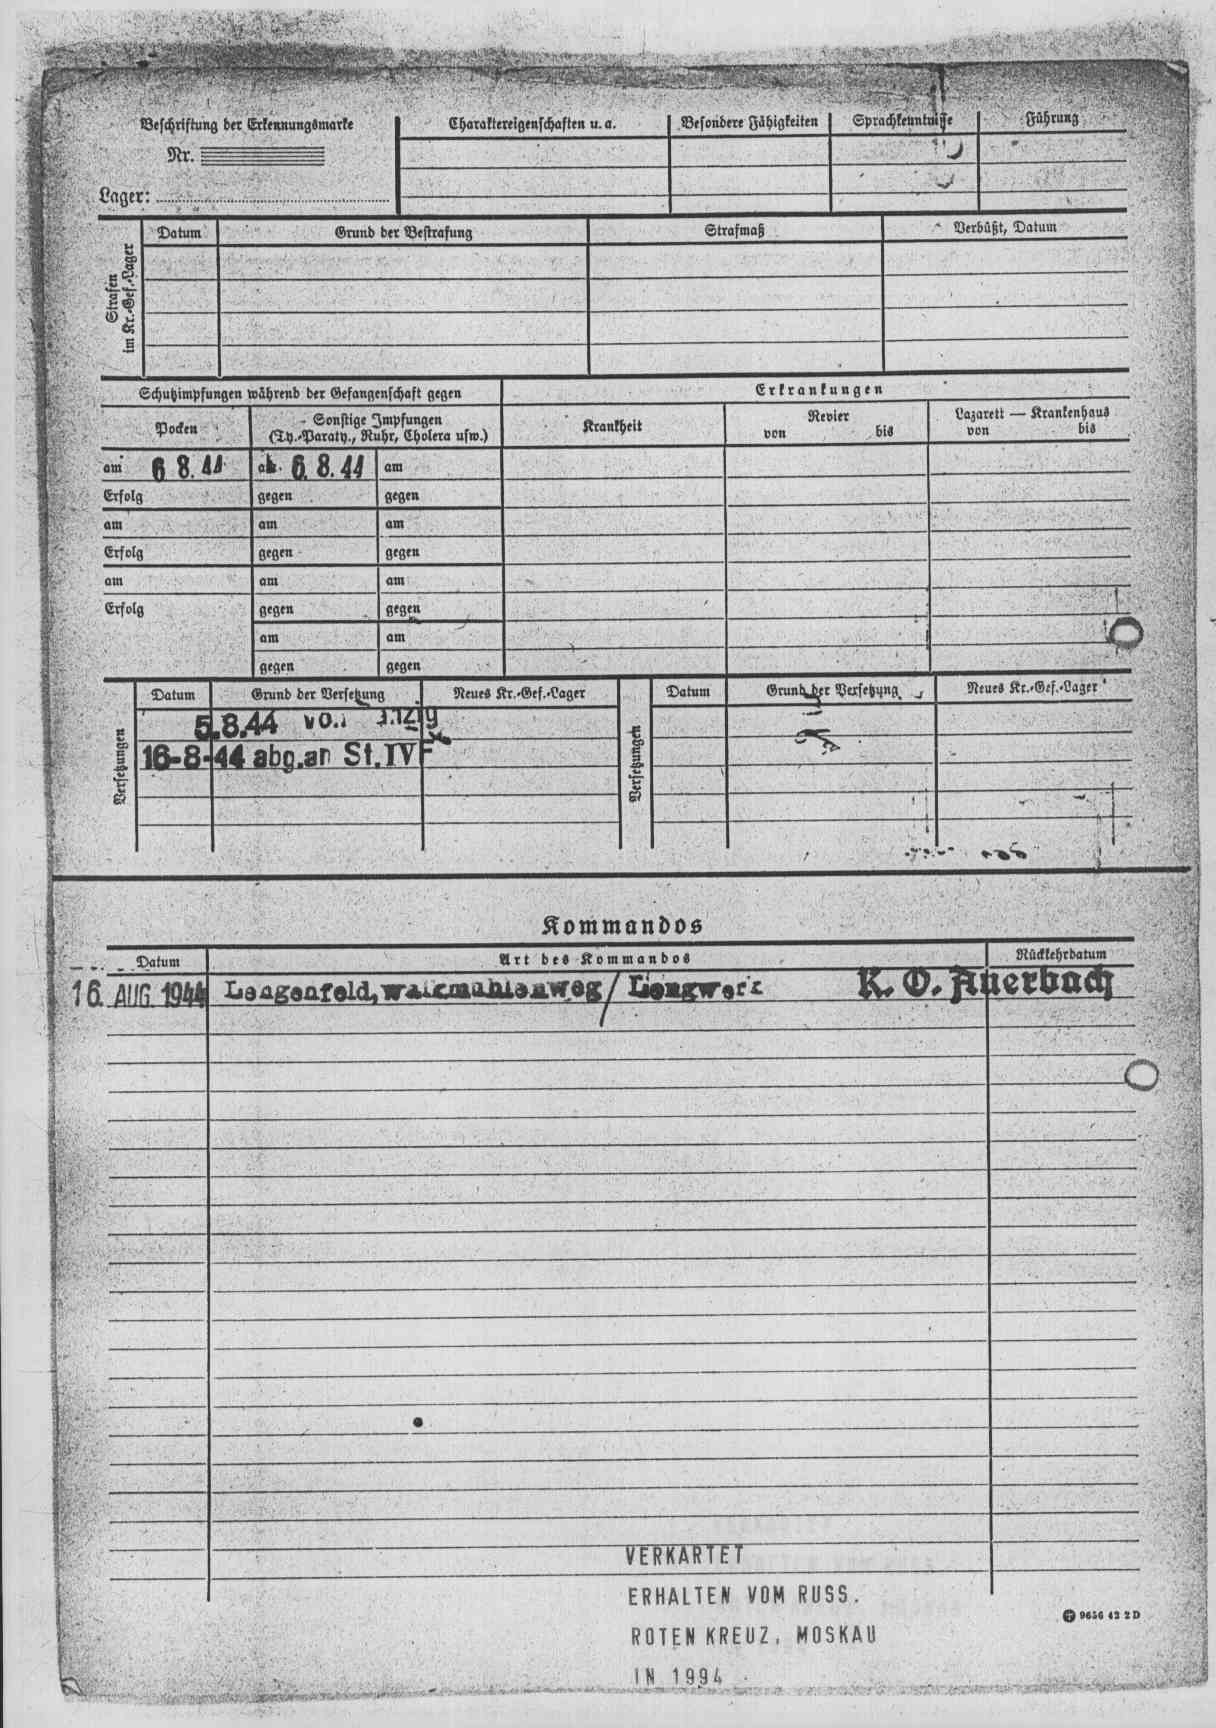 Beschriftung der Erkennungsmarke
Nr.
Lager:
Charaktereigenschaften u. a.
Besondere Fähigkeiten
Sprachkenntnisse
Führung
Strafen
im Kr.-Gef.-Lager
Datum
Grund der Bestrafung
Strafmaß
Verbüßt, Datum
Schutzimpfungen während der Gefangenschaft gegen
Erkrankungen
Pocken
Sonstige Impfungen
(Ty.-Paraty., Ruhr, Cholera usw.)
Krankheit
Revier
von bis
Lazarett — Krankenhaus
von bis
am 6 8. 44 6. 8. 44 am
Erfolg gegen gegen
am am am
Erfolg gegen gegen
am am am
Erfolg gegen gegen
am am
gegen gegen
Versetzungen
Datum Grund der Versetzung Neues Kr.-Gef.-Lager
5.8.44
16-8-44 abg.an St.IV F
Versetzungen
Datum Grund der Versetzung Neues Kr.-Gef.-Lager
Kommandos
Datum Art des Kommandos Rückkehrdatum
16. AUG. 1944 Lengenfeld, Walkmühlenweg / Lengwerk K. O. Auerbach
VERKARTET
ERHALTEN VOM RUSS.
ROTEN KREUZ, MOSKAU
IN 1994
9656 42 2 D